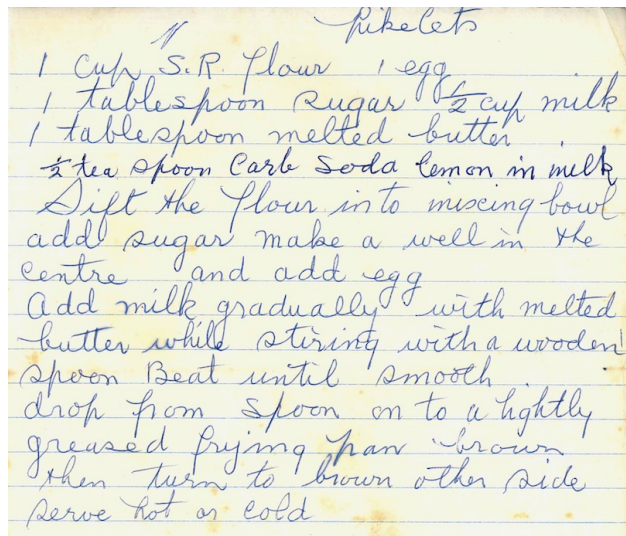 Pikelets
1 Cup S.R. flour 1 egg
1 tablespoon sugar 1/2 cup milk
1 tablespoon melted butter
1/2 tea spoon Carb Soda lemon in milk
Sift the flour into mixing bowl
add sugar make a well in the
centre and add egg
Add milk gradually with melted
butter while stiring with a wooden
spoon Beat until smooth.
drop from spoon on to a lightly
greased frying pan brown
then turn to brown other side
serve hot or cold